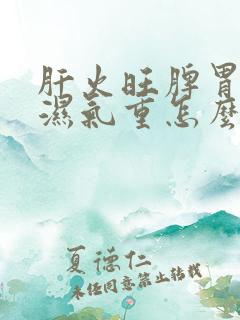 肝火旺脾胃
濕氣重怎麼
夏德仁
未经同意禁止转载